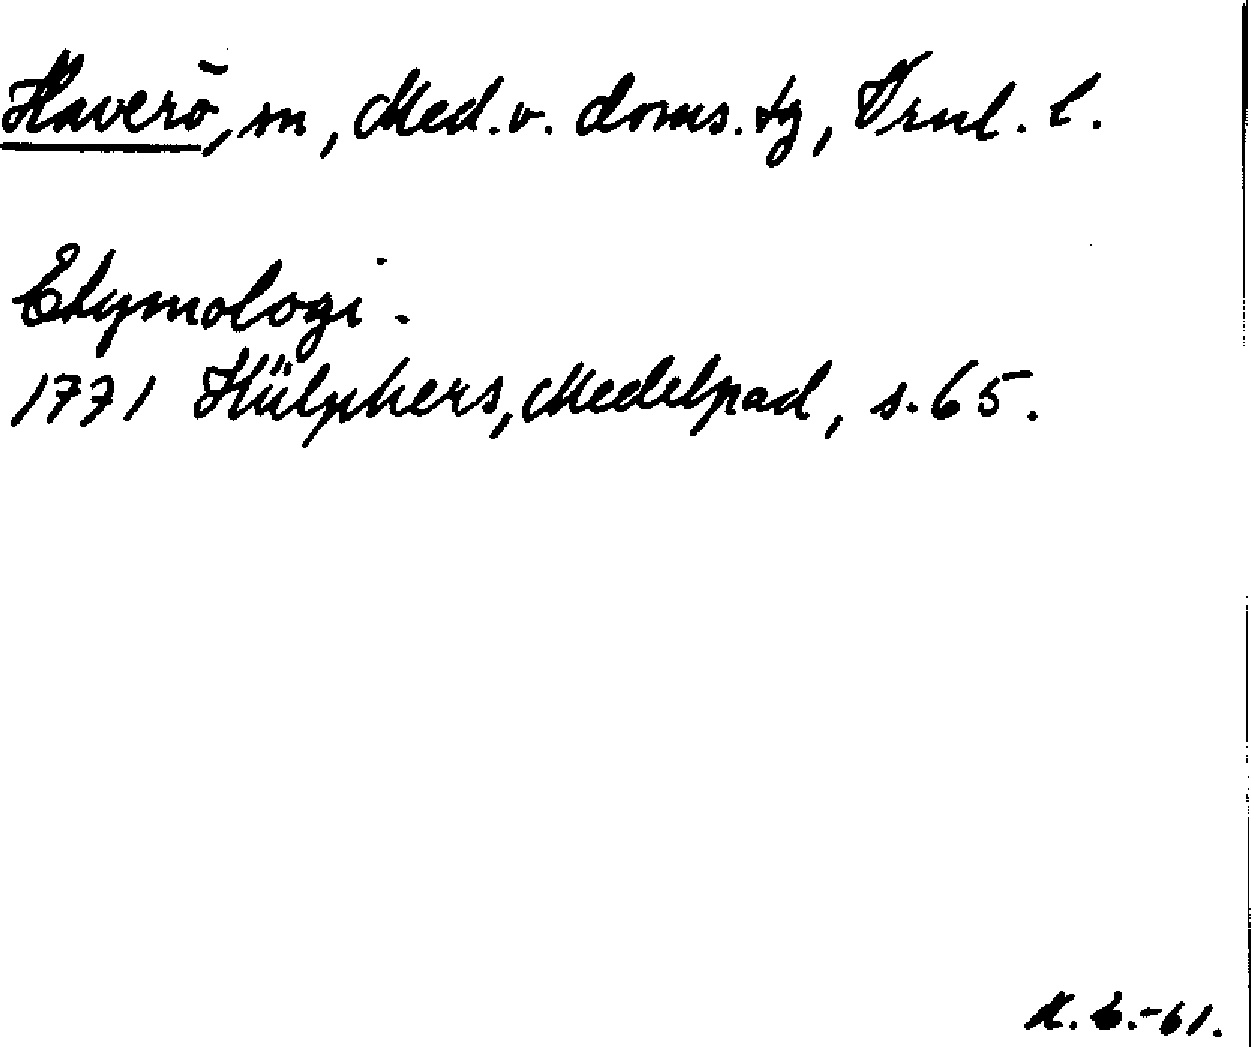 Haverö, sn, Med. v. doms. tg, Vrnl. l.
Etymologi.
1771 Hülphers, Medelpad, s. 65.